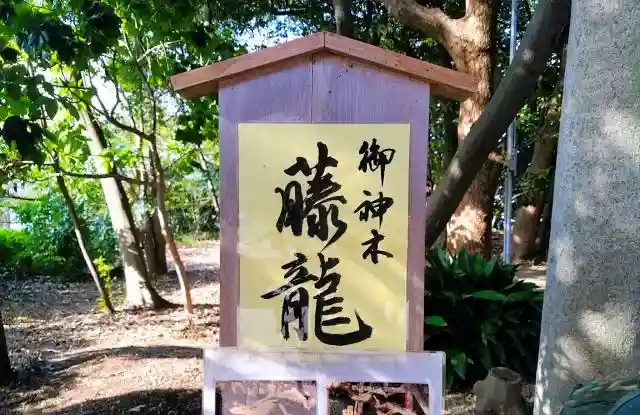 御神木
藤龍